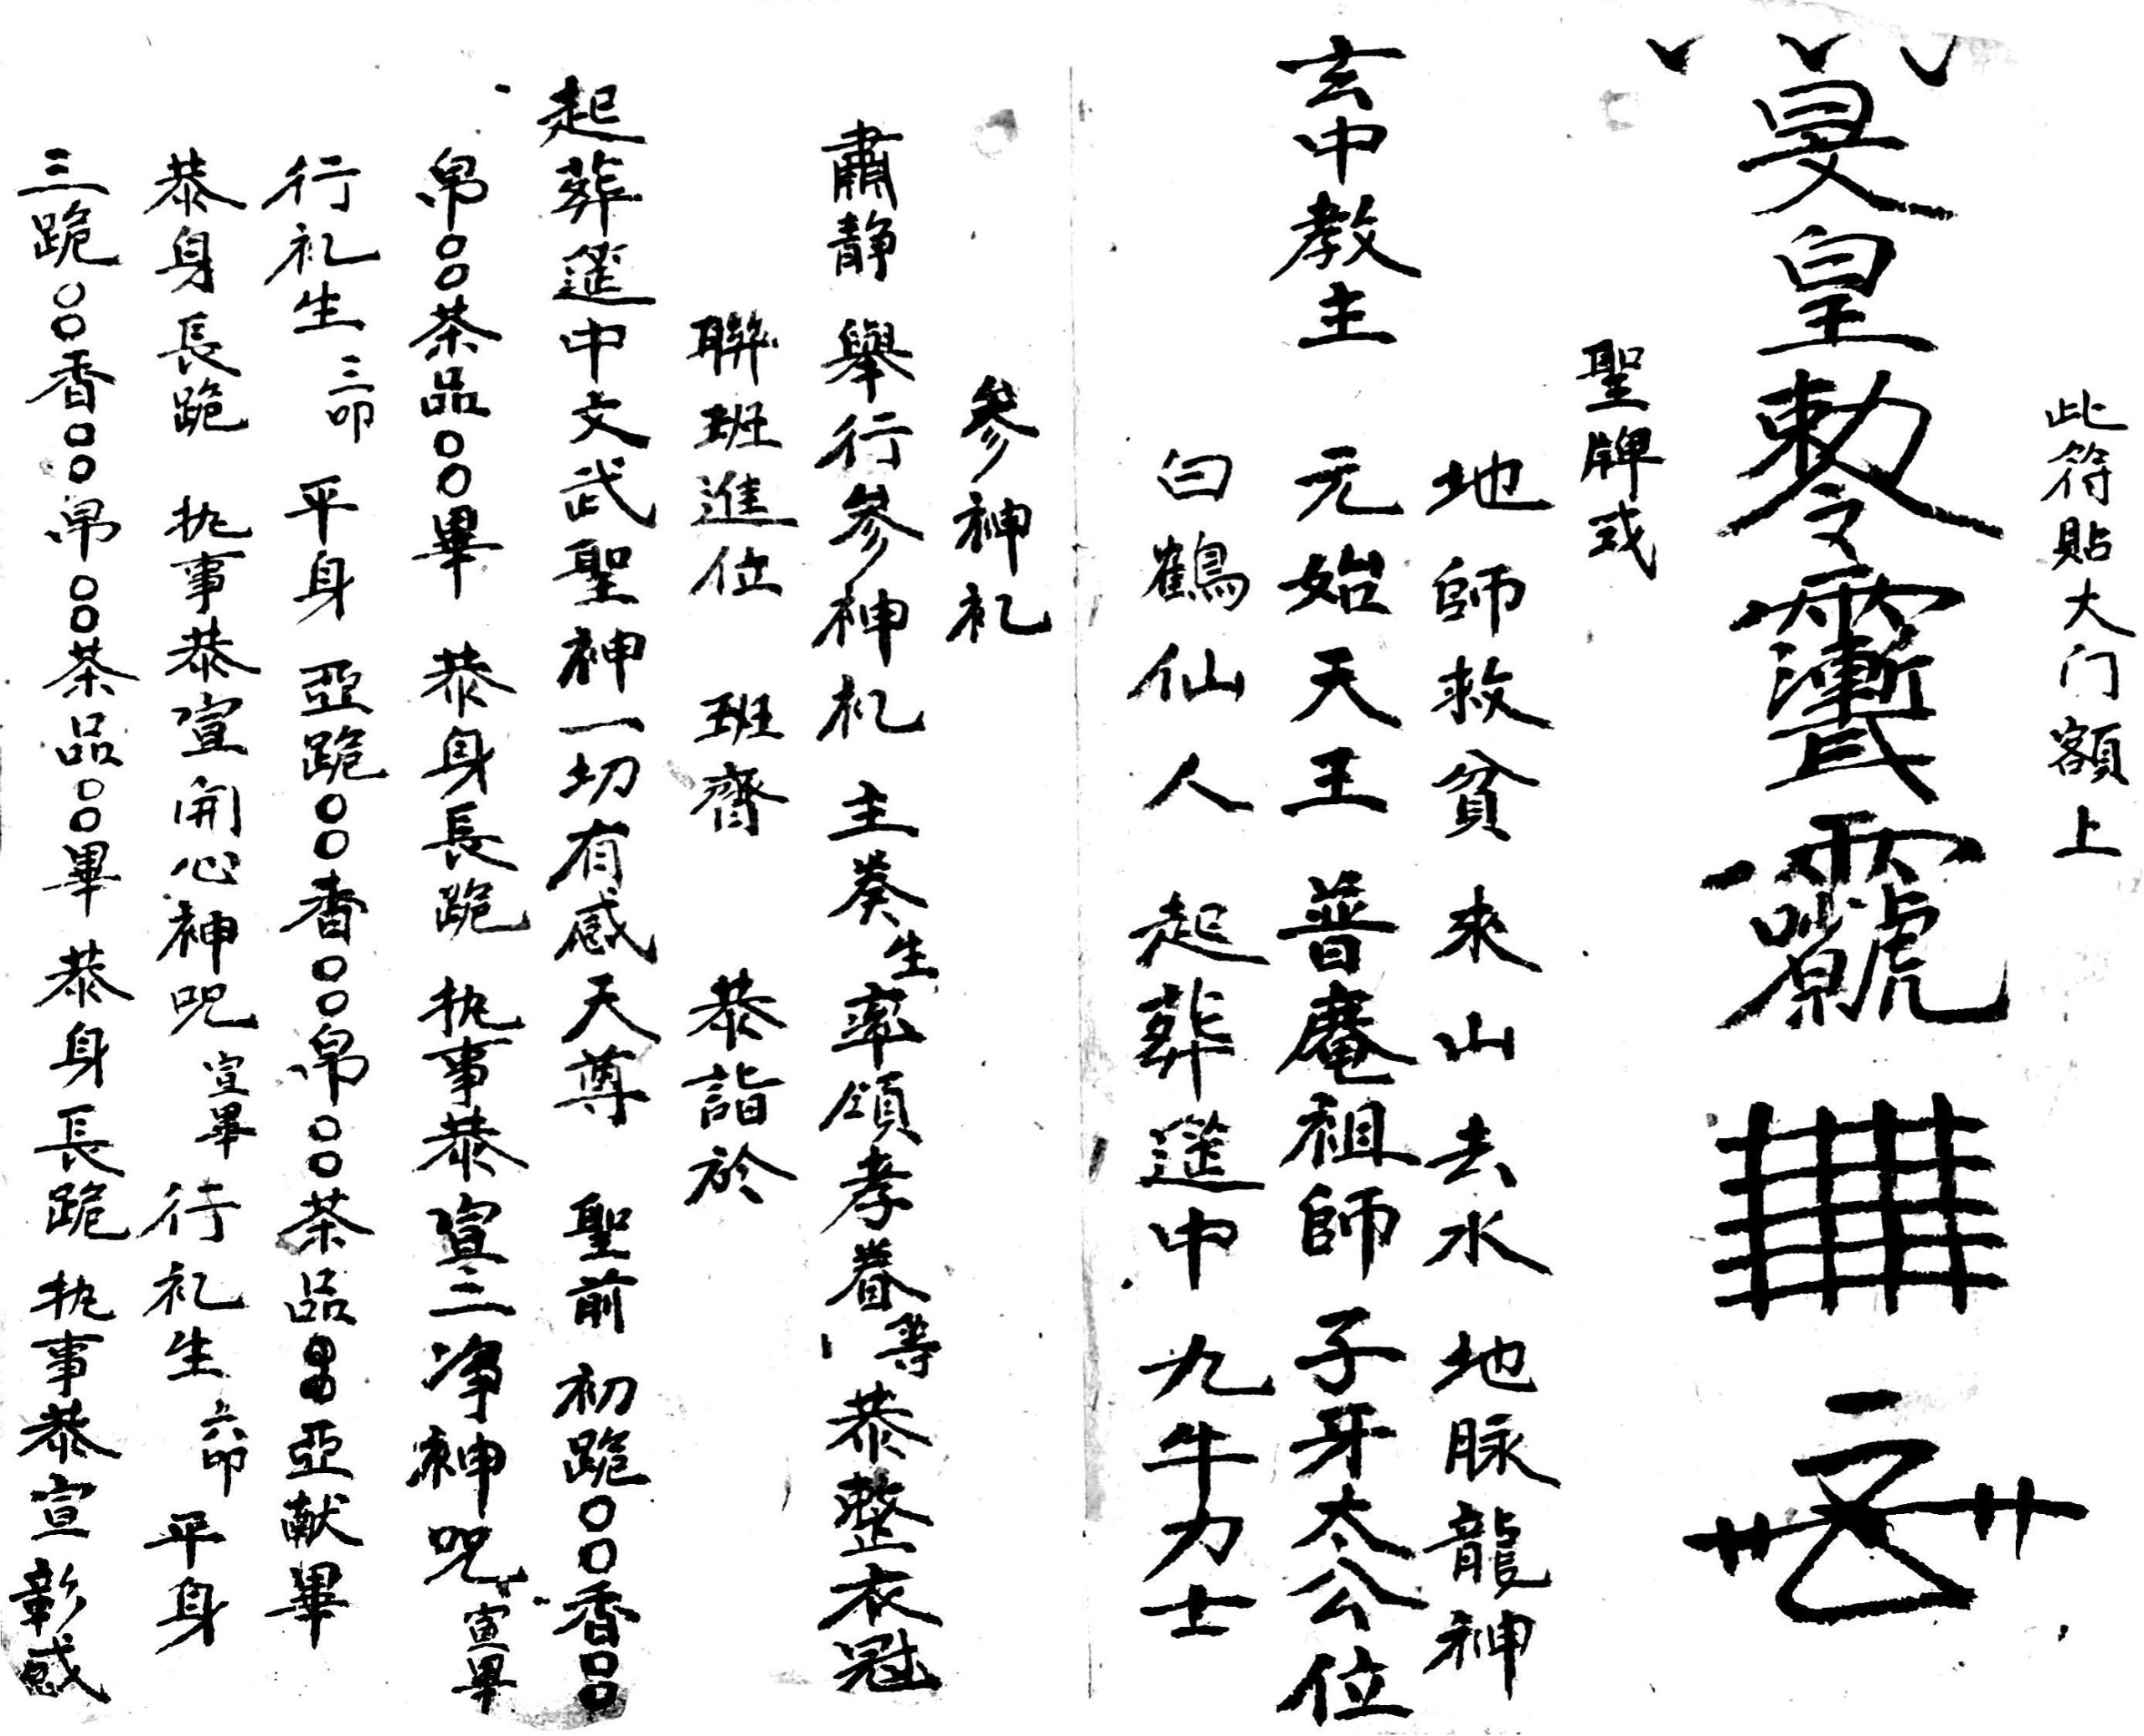 此符貼大门額上
旻皇敕令
聖牌或
地師救貧 來山去水 地脉龍神
玄中教主 元始天王 普庵祖師 子牙太公位
白鶴仙人 起葬筵中 九牛力士
參神礼
肅静 舉行參神礼 主葵生率領孝眷等恭整衣冠
聯班進位 班齊 恭詣於
起葬筵中文武聖神一切有感天尊 聖前 初跪○○香○○
帛○○茶品○○畢 恭身長跪 执事恭宣三净神咒 宣畢
行礼生 三叩 平身 亞跪○○香○○帛○○茶品○○亞献畢
恭身長跪 执事恭宣開心神咒 宣畢 行礼生 六叩 平身
三跪○○香○○帛○○茶品○○畢 恭身長跪 执事恭宣彰感